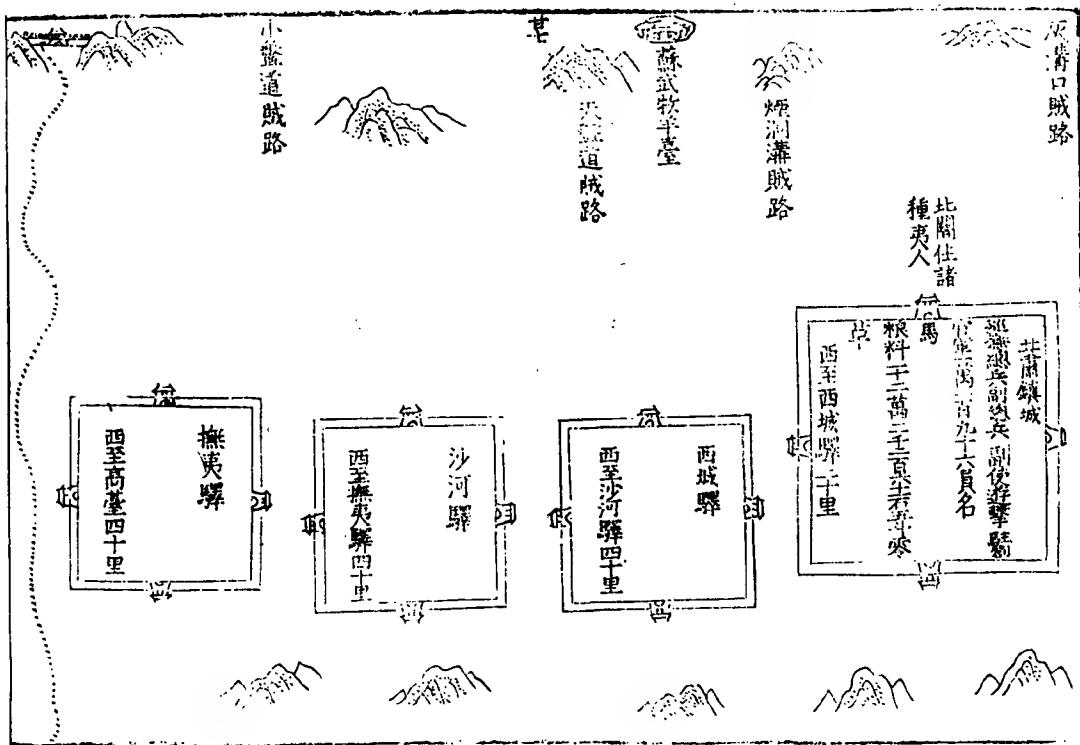 溝口賊路
煙洞溝賊路
蘇武牧羊臺
道賊路
小盤道賊路
北關住諸
種夷人
甘肅鎮城
巡撫總兵副總兵副使遊擊駐
官軍萬百九十六員名
馬
粮料二十二萬二千二百石零
草
西至西城驛二十里
西城驛
西至沙河驛四十里
沙河驛
西至撫夷驛四十里
撫夷驛
西至高臺四十里